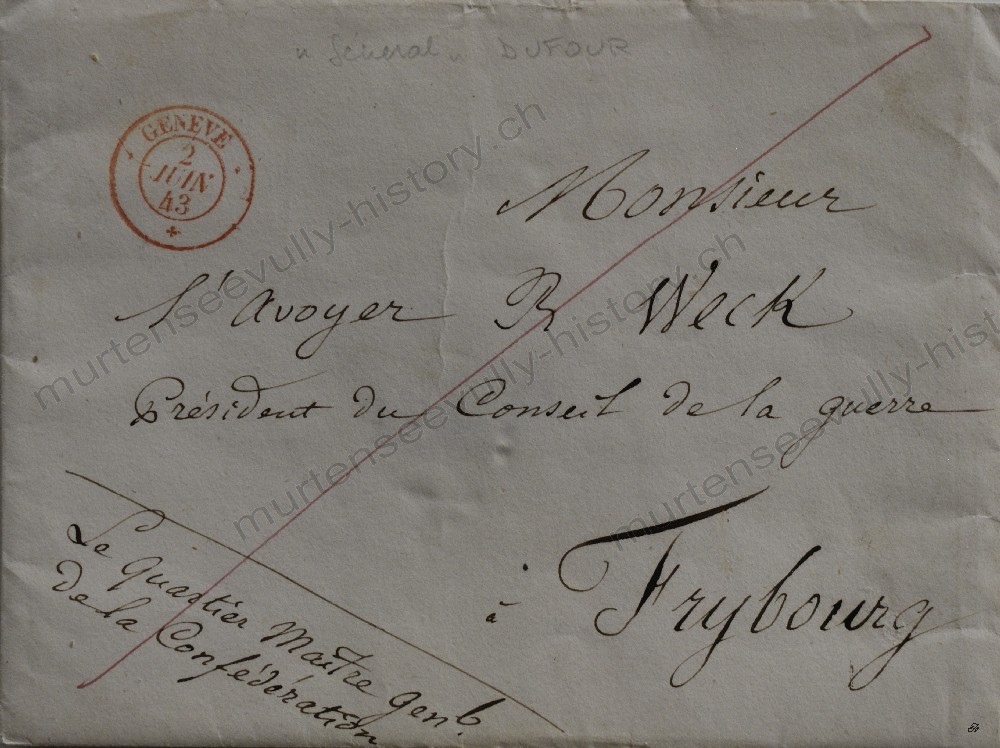 " Général " DUFOUR
GENEVE
2
JUIN
43
Monsieur
l'avoyer R Weck
Président du Conseil de la guerre
à Frybourg
Le quartier Maître Genl.
de la Confédération
murtenseevully-history.ch
murtenseevully-history.ch
murtenseevully-history.ch